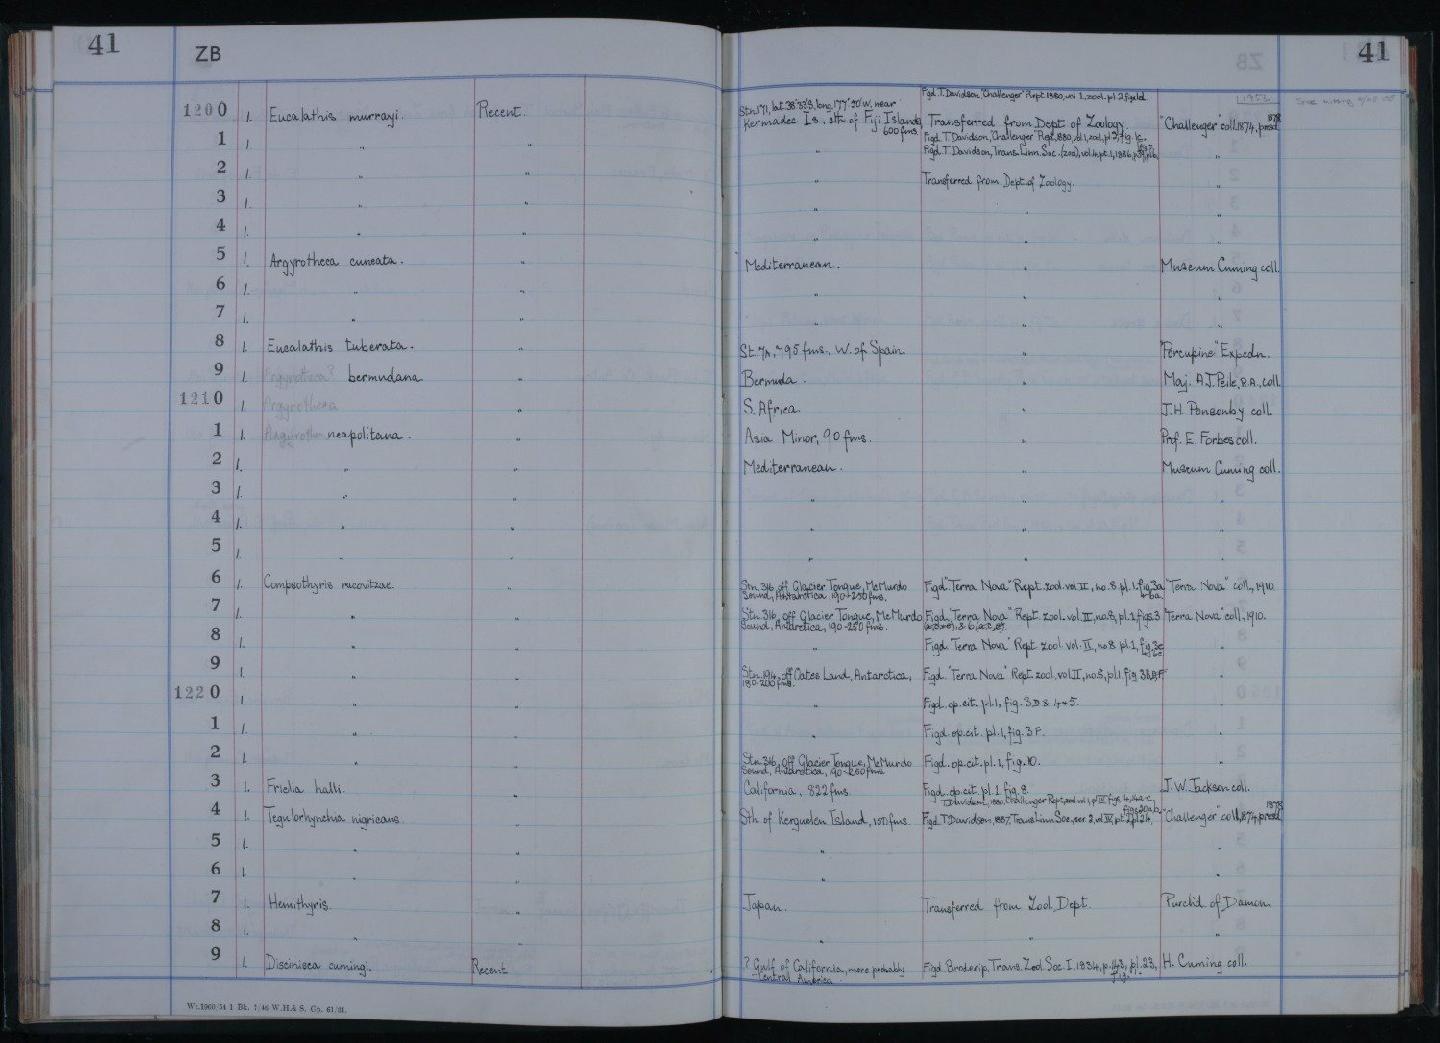 41 ZB 41
1953
Figd. T. Davidson, "Challenger" Rept. 1880, vol 1, zool. pl. 2 fig 1d
1200 1. Eucalathis murrayi. Recent. Stn. 171, lat. 28°33'S, long. 177°50'W. near
Kermadec Is., sth. of Fiji Islands, 600 fms. Transferred from Dept of Zoology. "Challenger" coll. 1874, presd. 1878
1 1. " " " Figd. T. Davidson, "Challenger" Rept. 1880, vol 1, zool., pl 2, fig. 1c.
Figd. T. Davidson, Trans. Linn. Soc. (zoo), vol. 4, pt. 1, 1886, "
2 1. " " " Transferred from Dept. of Zoology. "
3 1. " " " " "
4 1. " " " " "
5 1. Argyrotheca cuneata. " Mediterranean. " Museum Cuming coll.
6 1. " " " " "
7 1. " " " " "
8 1. Eucalathis tuberata. " W. of Spain. " "Porcupine" Expedn.
9 1. Argyrotheca? bermudana " Bermuda. " Maj. A.J. Peile, R.A., coll.
1210 1. Argyrotheca " S. Africa. " J.H. Ponsonby coll.
1 1. neapolitana. " Asia Minor, 90 fms. " Prof. E. Forbes coll.
2 1. " " Mediterranean. " Museum Cuming coll.
3 1. " " " " "
4 1. " " " " "
5 1. " " " " "
6 1. Compsothyris racovitzae. Stn. 316 off Glacier Tongue, McMurdo
Sound, Antarctica 190-250 fms. Figd. "Terra Nova" Rept. zool. vol. II, no. 8. pl. 1. fig. 3a "Terra Nova" coll., 1910
7 1. " " Stn. 316, off Glacier Tongue, McMurdo
Sound, Antarctica, 190-250 fms. Figd. "Terra Nova" Rept. zool. vol. II, no. 8, pl. 1 figs. 3 "Terra Nova" coll, 1910.
8 1. " " " Figd. "Terra Nova" Rept. zool. vol. II, no 8. pl. 1, fig. 3c "
9 1. " " Stn. 194, off Oates Land, Antarctica,
180-200 fms. Figd. "Terra Nova" Rept. zool. vol. II, no. 8, pl. 1 fig "
1220 1. " " " Figd. op. cit. pl. 1, fig. 3D & 4+5. "
1 1. " " " Figd. op. cit. pl. 1, fig. 3F. "
2 1. " " Stn. 316, off Glacier Tongue, McMurdo
Sound, Antarctica, 190-250 fms Figd. op. cit. pl. 1, fig. 10. "
3 1. Frielia halli. " California, 822 fms. Figd. op. cit. pl. 1 fig. 8. J.W. Jackson coll.
T. Davidson, 1880, Challenger Rept, zool vol 1, pl
4 1. Tegulorhynchia nigricans. " Sth of Kerguelen Island, 150 fms. Figd. T. Davidson, 1887, Trans Linn Soc, ser. 2, vol IV, "Challenger" coll, 1874, presd 1878
5 1. " " "
6 1. " " "
7 1. Hemithyris. " Japan. Transferred from Zool. Dept. Purchd. of Damon.
8 1. " " " " "
9 1. Discinisca cumingi. Recent ? Gulf of California, more probably
Central America Figd. Broderip, Trans. Zool. Soc. I. 1834, p. 143, pl. 23, H. Cuming coll.
Wt.1960/54 1 Bk. 7/46 W.H.& S. Gp. 61/31.